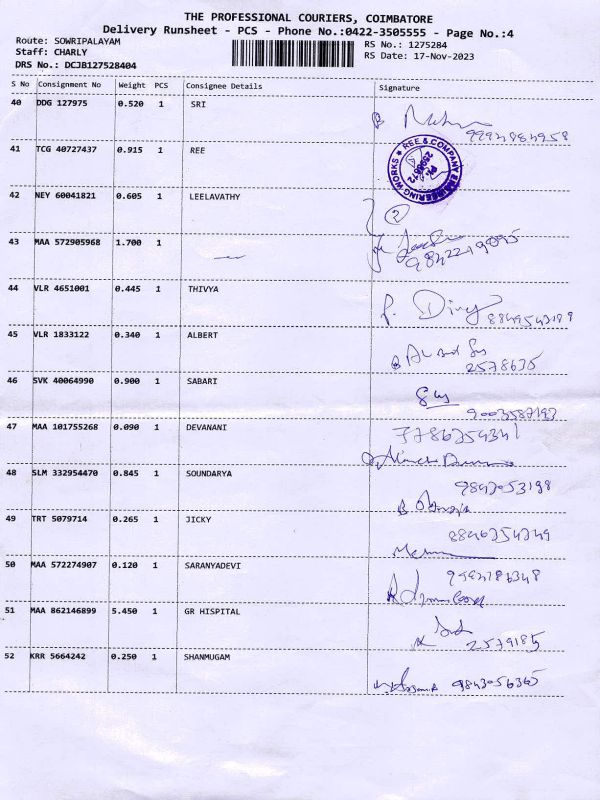 THE PROFESSIONAL COURIERS, COIMBATORE
Delivery Runsheet - PCS - Phone No.:0422-3505555 - Page No.:4
Route: SOWRIPALAYAM
RS No.: 1275284
Staff: CHARLY
RS Date: 17-Nov-2023
DRS No.: DCJB127528404
S No Consignment No Weight PCS Consignee Details Signature
40 DDG 127975 0.520 1 SRI
41 TCG 40727437 0.915 1 REE
REE & COMPANY ENGINEERING WORKS ★
42 NEY 60041821 0.605 1 LEELAVATHY
43 MAA 572905968 1.700 1
44 VLR 4651001 0.445 1 THIVYA
45 VLR 1833122 0.340 1 ALBERT
2578635
46 SVK 40064990 0.900 1 SABARI
47 MAA 101755268 0.090 1 DEVANANI
48 SLM 332954470 0.845 1 SOUNDARYA
49 TRT 5079714 0.265 1 JICKY
50 MAA 572274907 0.120 1 SARANYADEVI
51 MAA 862146899 5.450 1 GR HISPITAL
2579185
52 KRR 5664242 0.250 1 SHANMUGAM
9843056365